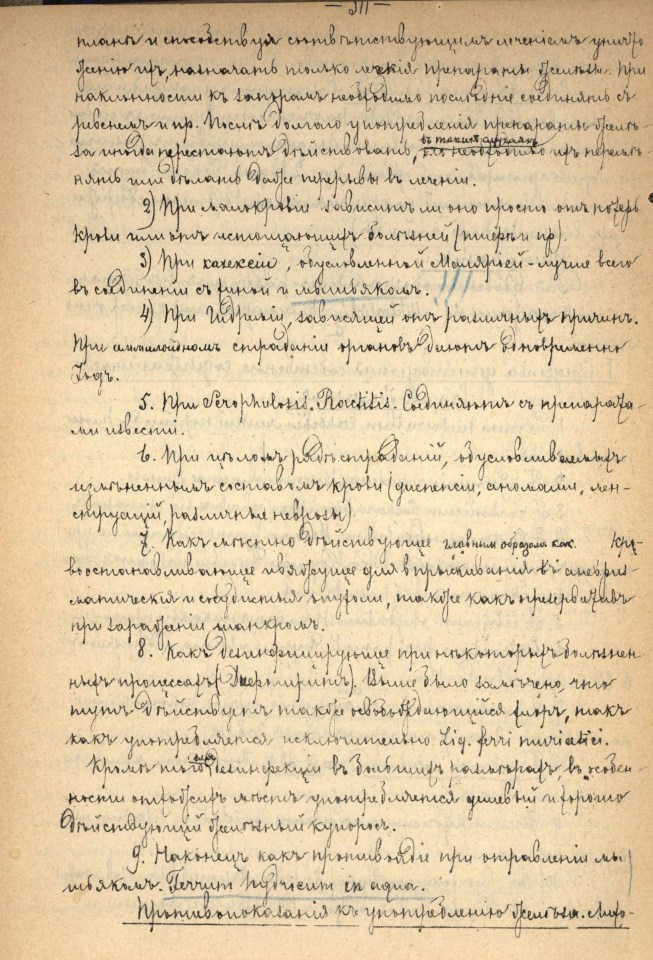 — 311 —
планъ и способствуя соотвѣтствующимъ леченіемъ уничто
женію ихъ, назначать только легкія препараты желѣза. При
наклонности къ запорамъ необходимо послѣдніе соединять съ
ревенемъ и пр. Послѣ долгаго употребленія препараты желѣ-
за иногда перестаютъ дѣйствовать, въ такихъ случаяхъ необходимо ихъ перемѣ-
нять или дѣлать даже перерывы въ леченіи.
2) При малокровіи зависитъ ли оно просто отъ потерь
крови или отъ истощающихъ болѣзней (тифъ и пр).
3) При кахексіи, обусловленной Маляріей - лучше всего
въ соединеніи съ хиной и мышьякомъ.
4) При Гидреміи, зависящей отъ различныхъ причинъ.
При амилоидномъ страданіи органовъ даютъ одновременно
Іодъ.
5. При Scrophulosis. Rachitis. Соединяютъ съ препарата-
ми извести.
6. При цѣломъ рядѣ страданій, обусловливаемыхъ
измѣненнымъ составомъ крови (диспепсіи, аномаліи, мен-
струацій, различные неврозы)
7. Какъ мѣстно дѣйствующее главнымъ образомъ как. кро-
востанавливающее и вяжущее для впрыскиванія въ аневриз-
матическія и сосудистыя опухоли, также какъ презервативъ
при зараженіи шанкромъ.
8. Какъ дезинфицирующее при нѣкоторыхъ болѣзнен
ныхъ процессахъ Выше было замѣчено, что
тутъ дѣйствуетъ также освобождающійся хлоръ, такъ
какъ употребляется исключительно Liq. ferri muriatici.
Кромѣ того для дезинфекціи въ большихъ размѣрахъ въ особен-
ности отхожихъ мѣстъ употребляется дешевый и хорошо
дѣйствующій желѣзный купоросъ.
9. Наконецъ какъ противоядіе при отравленіи мы
шьякомъ. Ferrum hydricum in aqua.
Противопоказанія къ употребленію желѣза.